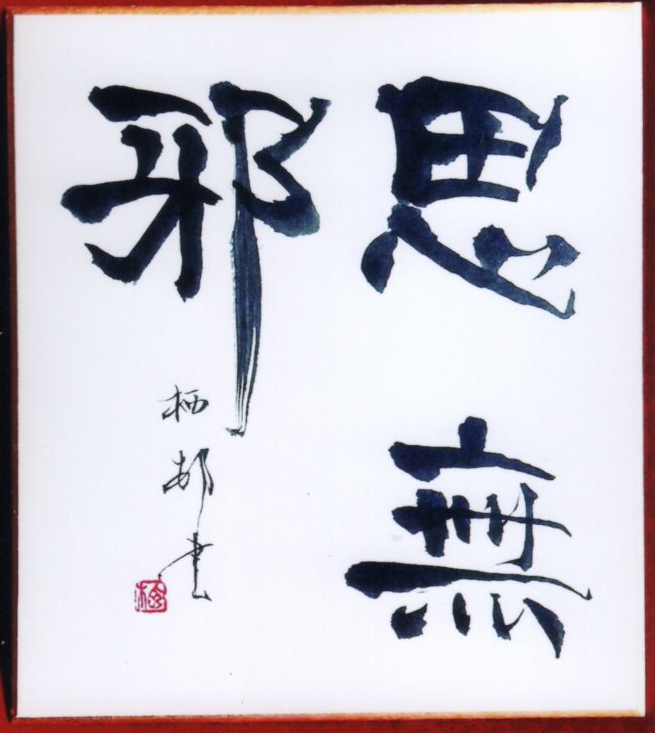 思無
邪
栖邨書